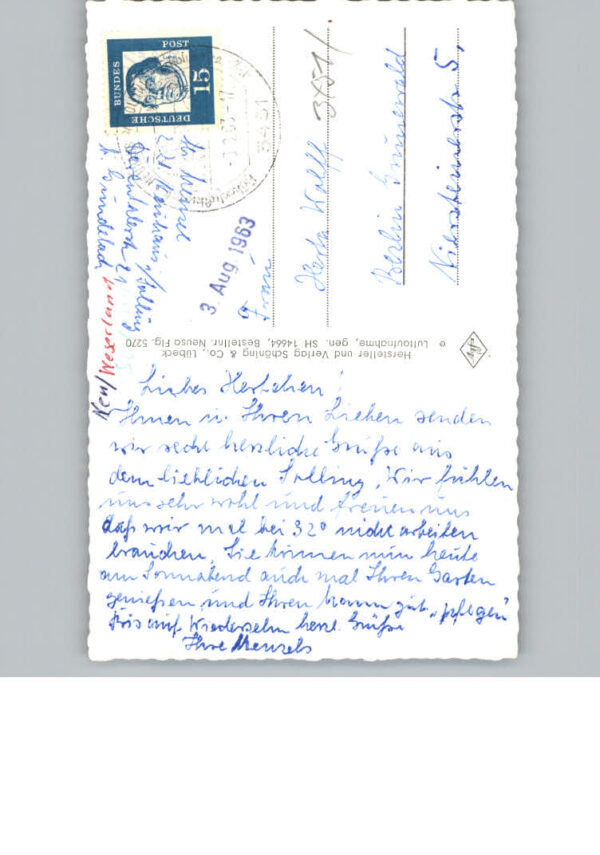 Liebes Hertchen!
Ihnen u. Ihren Lieben senden
wir recht herzliche Grüße aus
dem lieblichen Solling. Wir fühlen
uns sehr wohl und freuen uns
daß wir mal bei 32° nicht arbeiten
brauchen. Sie können nun heute
am Sonnabend auch mal Ihren Garten
genießen und Ihren gut „pflegen"
Bis auf Wiedersehn herzl. Grüße
Ihre Menzels
Hersteller und Verlag Schöning & Co., Lübeck
© Luftaufnahme, gen. SH 14664, Bestellnr. Neuso Flg. 5270
DEUTSCHE
BUNDES
POST
15
3451
3. Aug 1963
Frau
Herta Wolff
Berlin Grunewald
Niersteinerstr 5.
Menzel
Neuhaus/Solling